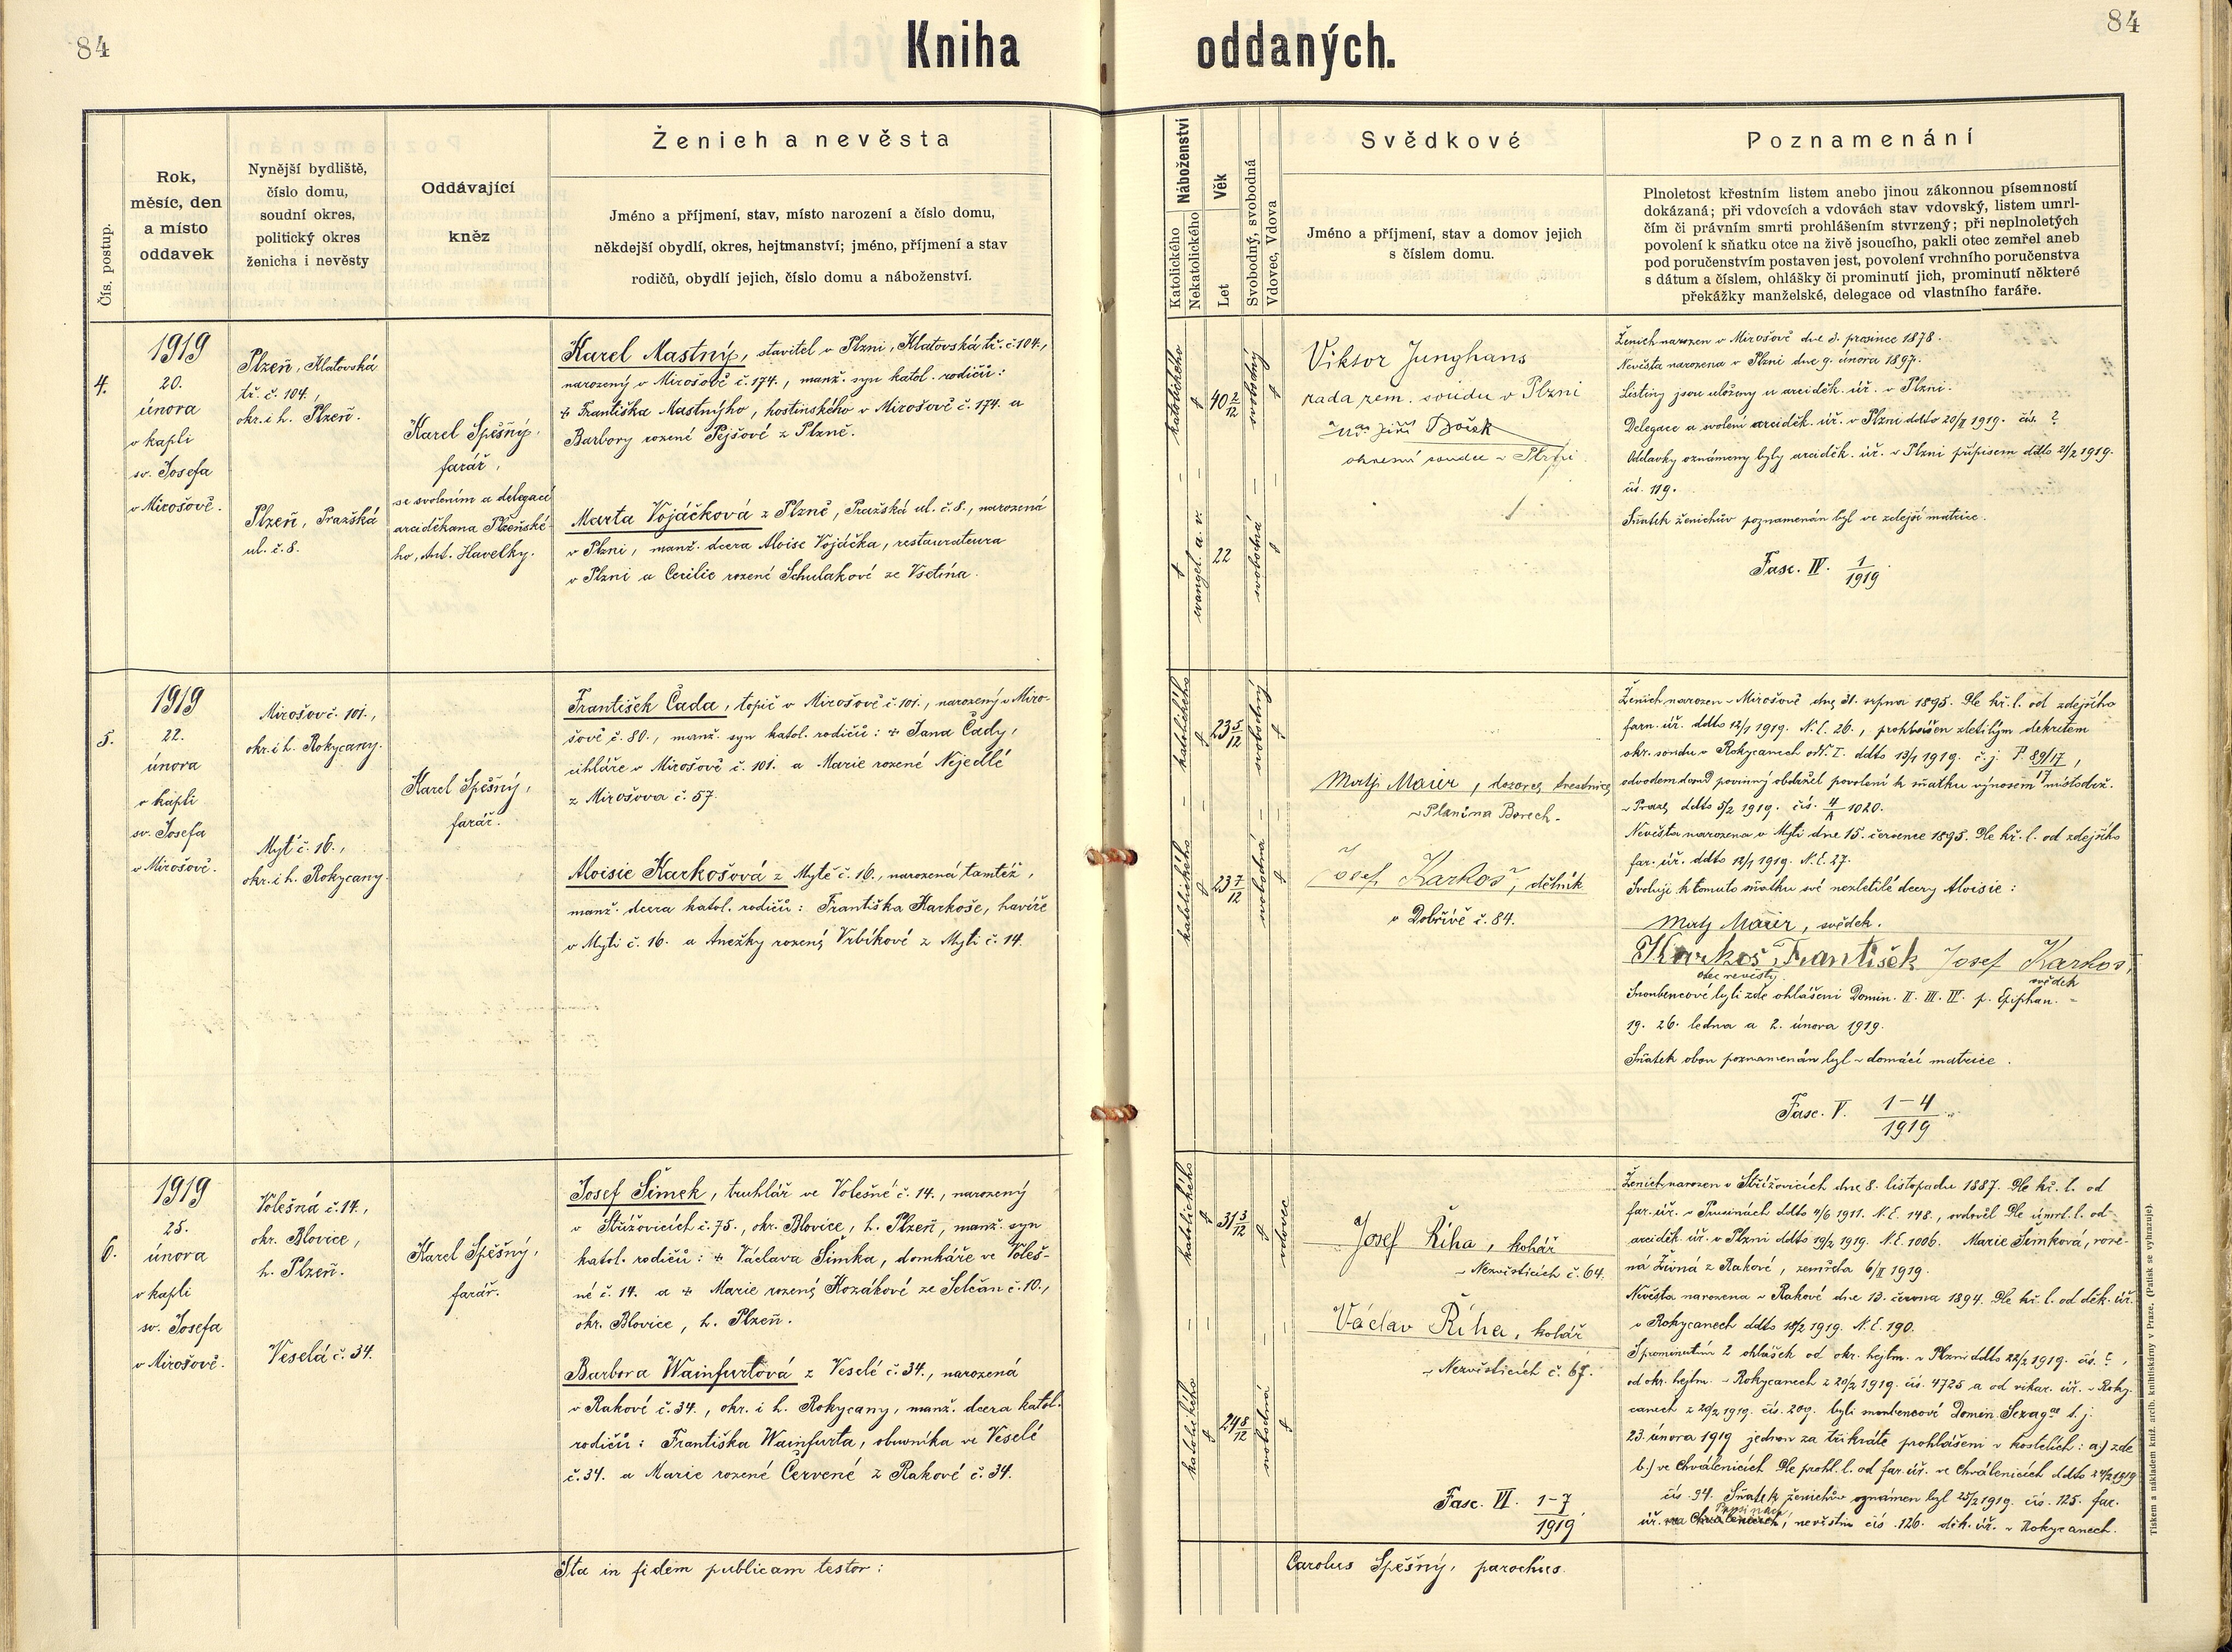 84
Kniha oddaných.
84
Čís. postup.
Rok,
měsíc, den
a místo
oddavek
Nynější bydliště,
číslo domu,
soudní okres,
politický okres
ženicha i nevěsty
Oddávající
kněz
Ženich a nevěsta
Jméno a příjmení, stav, místo narození a číslo domu,
někdejší obydlí, okres, hejtmanství; jméno, příjmení a stav
rodičů, obydlí jejich, číslo domu a náboženství.
Náboženství
Katolického
Nekatolického
Věk
Let
Svobodný, svobodná
Vdovec, Vdova
Svědkové
Jméno a příjmení, stav a domov jejich
s číslem domu.
Poznamenání
Plnoletost křestním listem anebo jinou zákonnou písemností
dokázaná; při vdovcích a vdovách stav vdovský, listem umrl-
čím či právním smrti prohlášením stvrzený; při neplnoletých
povolení k sňatku otce na živě jsoucího, pakli otec zemřel aneb
pod poručenstvím postaven jest, povolení vrchního poručenstva
s dátum a číslem, ohlášky či prominutí jich, prominutí některé
překážky manželské, delegace od vlastního faráře.
4.
1919
20.
února
v kapli
sv. Josefa
v Mirošově.
Plzeň, Klatovská
tř. č. 104.,
okr. i h. Plzeň.
Plzeň, Pražská
ul. č. 8.
Karel Spěšný,
farář,
se svolením a delegací
arciděkana Plzeňské-
ho, Ant. Havelky.
Karel Mastný, stavitel v Plzni, Klatovská tř. č. 104.,
narozený v Mirošově č. 174., manž. syn katol. rodičů:
+ Františka Mastnýho, hostinského v Mirošově č. 174. a
Barbory rozené Pejšové z Plzně.
Marta Vojáčková z Plzně, Pražská ul. č. 8., narozená
v Plzni, manž. dcera Aloise Vojáčka, restaurateura
v Plzni a Cecilie rozené Schulakové ze Vsetína.
katolického
40 2/12
svobodný
evangel. a. v.
22
svobodná
Viktor Junghans
rada zem. soudu v Plzni
okresní soudce v Plzni
Ženich narozen v Mirošově dne 3. prosince 1878.
Nevěsta narozena v Plzni dne 9. února 1897.
Listiny jsou uloženy u arciděk. úř. v Plzni.
Delegace a svolení arciděk. úř. v Plzni ddto 20/II 1919. čís. ?
Oddavky oznámeny byly arciděk. úř. v Plzni přípisem ddto 21/2 1919.
čís. 119.
Sňatek ženichův poznamenán byl ve zdejší matrice.
Fasc. IV. 1/1919
5.
1919
22.
února
v kapli
sv. Josefa
v Mirošově.
Mirošov č. 101.,
okr. i h. Rokycany.
Mýť č. 16.,
okr. i h. Rokycany.
Karel Spěšný,
farář.
František Čada, topič v Mirošově č. 101., narozený v Miro-
šově č. 80., manž. syn katol. rodičů: + Jana Čady,
cihláře v Mirošově č. 101. a Marie rozené Nejedlé
z Mirošova č. 57.
Aloisie Karkošová z Mýtě č. 16., narozená tamtéž,
manž. dcera katol. rodičů: Františka Karkoše, havíře
v Mýti č. 16. a Anežky rozený Vrbíkové z Mýti č. 14.
katolického
23 5/12
svobodný
katolického
23 7/12
svobodná
Matj Maier, dozorce trestnice
v Plzni na Borech.
Josef Karkoš, dělník
v Dobřívě č. 84.
Ženich narozen v Mirošově dne 31. srpna 1895. Dle kř. l. od zdejšího
farn. úř. ddto 12/1 1919. N. E. 26., prohlášen zletilým dekretem
okr. soudu v Rokycanech odd. I. ddto 13/1 1919. č. j. P. 89/17,
odvodem domů povinný obdržel povolení k sňatku výnosem místodrž.
v Praze, ddto 5/2 1919. čís. 4/A 1020.
Nevěsta narozena v Mýti dne 15. července 1895. Dle kř. l. od zdejšího
far. úř. ddto 12/1 1919. N. E. 27.
Svoluji k tomuto sňatku své nezletilé dcery Aloisie:
Matj Maier, svědek.
Karkoš František Josef Karkoš,
otec nevěsty svědek
Snoubencové byli zde ohlášeni Domin. II. III. IV. p. Epiphan. =
19. 26. ledna a 2. února 1919.
Sňatek obou poznamenán byl v domácí matrice.
Fasc. V. 1-4/1919
6.
1919
25.
února
v kapli
sv. Josefa
v Mirošově.
Volešná č. 14.,
okr. Blovice,
h. Plzeň.
Veselá č. 34.
Karel Spěšný,
farář.
Josef Šimek, truhlář ve Volešné č. 14., narozený
v Střížovicích č. 75., okr. Blovice, h. Plzeň, manž. syn
katol. rodičů: + Václava Šimka, domkáře ve Voleš-
né č. 14. a + Marie rozený Kozákové ze Setčan č. 10.,
okr. Blovice, h. Plzeň.
Barbora Wainfurtová z Veselé č. 34., narozená
v Rakové č. 34., okr. i h. Rokycany, manž. dcera katol.
rodičů: Františka Wainfurta, obuvníka ve Veselé
č. 34. a Marie rozené Červené z Rakové č. 34.
katolického
31 3/12
vdovec
katolického
24 8/12
svobodná
Josef Říha, kolář
v Nezvěsticích č. 64.
Václav Říha, kolář
v Nezvěsticích č. 67.
Fasc. VI. 1-7/1919
Ženich narozen v Střížovicích dne 8. listopadu 1887. Dle kř. l. od
far. úř. v Prusinách ddto 4/6 1911. N. E. 148., ovdověl dle úmrt. l. od
arciděk. úř. v Plzni ddto 19/2 1919. N. E. 1006. Marie Šimková, roze-
ná Živná z Rakové, zemřela 6/II 1919.
Nevěsta narozena v Rakové dne 13. června 1894. Dle kř. l. od děk. úř.
v Rokycanech ddto 18/2 1919. N. E. 190.
S prominutím 2 ohlášek od okr. hejtm. v Plzni ddto 22/2 1919. čís. ?,
od okr. hejtm. v Rokycanech z 20/2 1919. čís. 4725 a od vikar. úř. v Roky-
canech z 20/2 1919. čís. 209. byli snoubencové Domin. Sexages t. j.
23. února 1919 jednou za třikráte prohlášeni v kostelích: a.) zde
b.) ve Chválenicích Dle prohl. l. od far. úř. ve Chválenicích ddto 24/2 1919
čís. 94. Sňatek ženichův oznámen byl 25/2 1919. čís. 125. far.
úř. v Prusinách, nevěstin čís. 126. děk. úř. v Rokycanech.
Ita in fidem publicam testor:
Carolus Spěšný, parochus.
Tiskem a nákladem kníž. arcib. knihtiskárny v Praze. (Patisk se vyhrazuje).